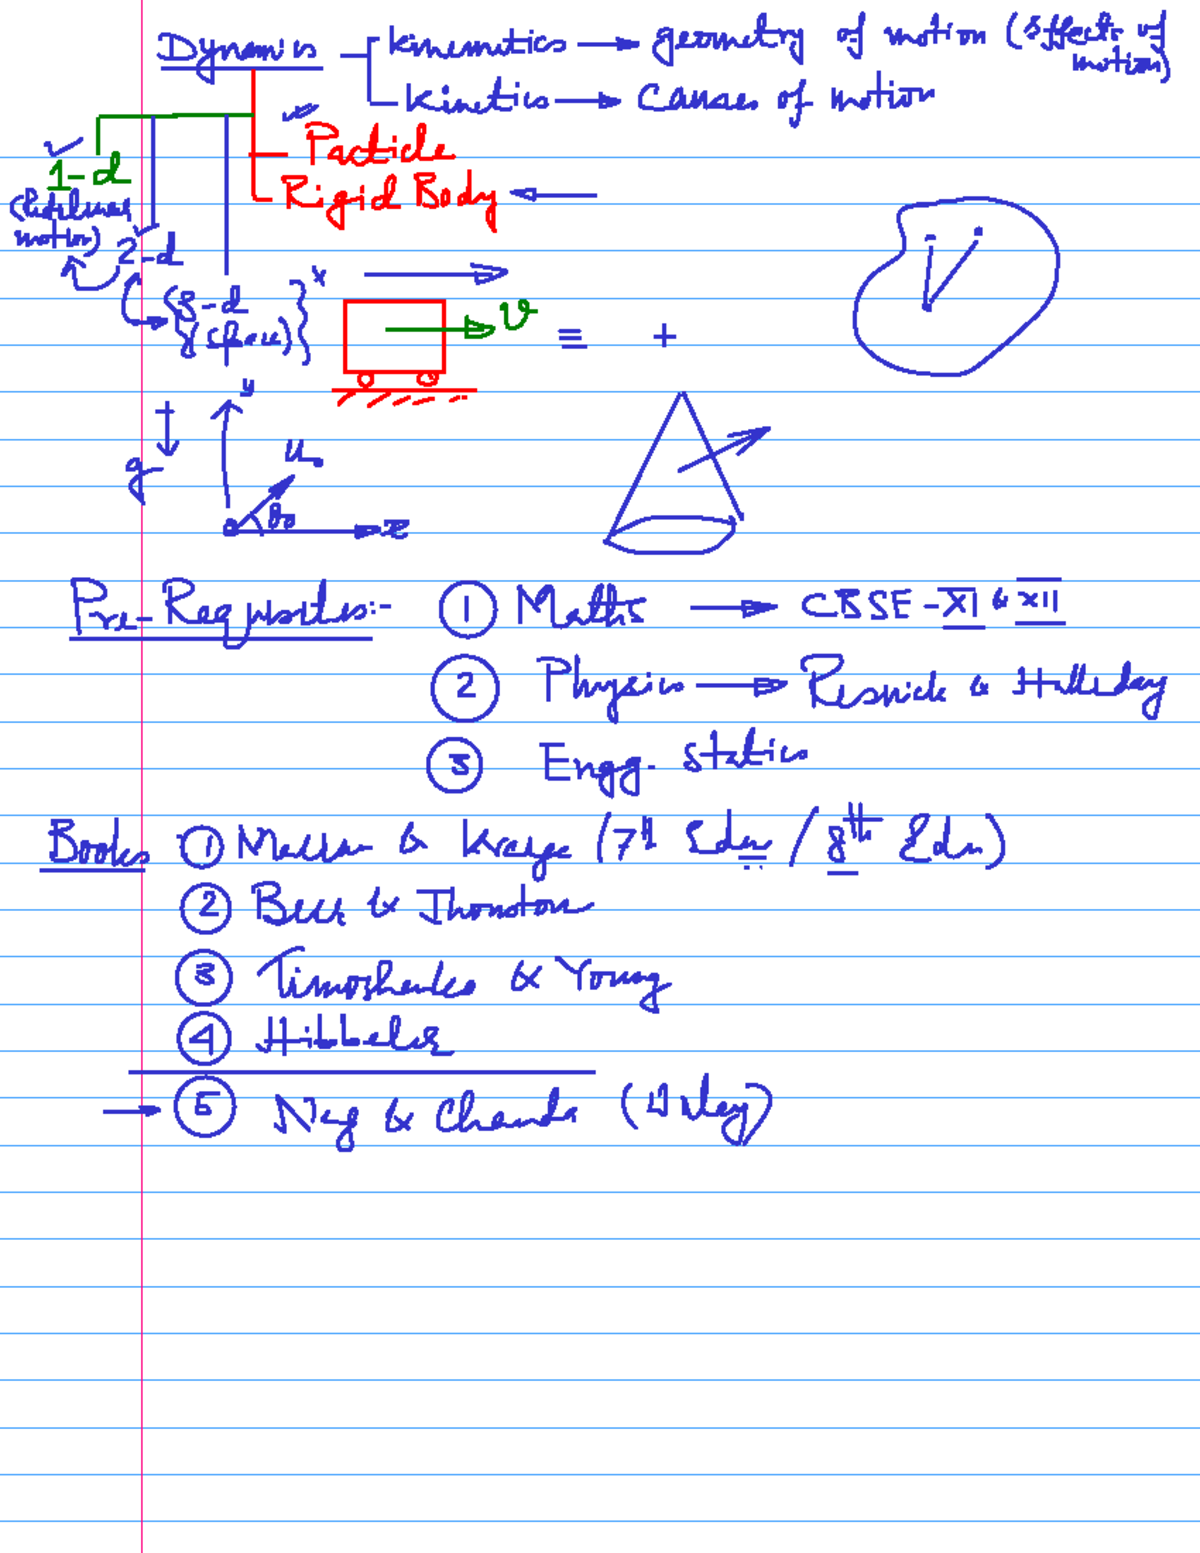 Dynamics
kinematics → geometry of motion (Effects of motion)
Kinetics → Causes of motion
Particle
Rigid Body
1-d
(Rectilinear motion)
2-d
3-d
x
v
≡ +
y
g
u₀
θ₀
x
Pre-Requisites:-
① Maths → CBSE - XI & XII
② Physics → Resnick & Halliday
③ Engg. Statics
Books ① Meriam & Kraige (7th Edn / 8th Edn)
② Beer & Jhonston
③ Timoshenko & Young
④ Hibbeler
→ ⑤ Nag & Chanda (Wiley)